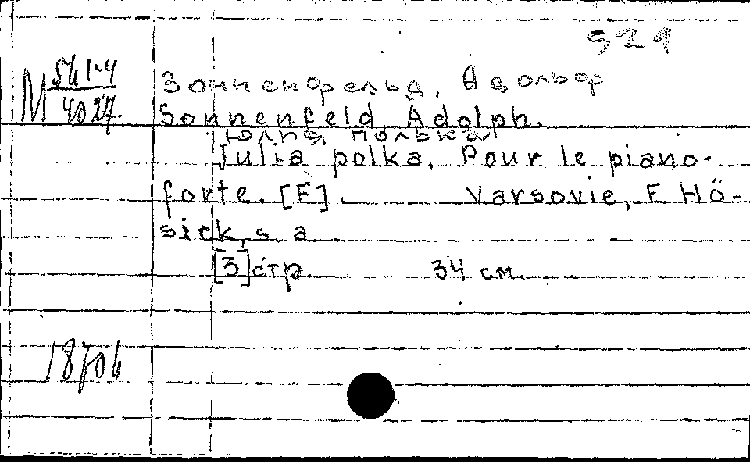 921
М 541-4
4027
Зонненфельд, Адольф
Sonnenfeld Adolph.
Юлия, полька
Julia polka. Pour le piano-
forte. [F] Varsovie, F. Hö-
sick, s. a
[3] стр. 34 см.
18706